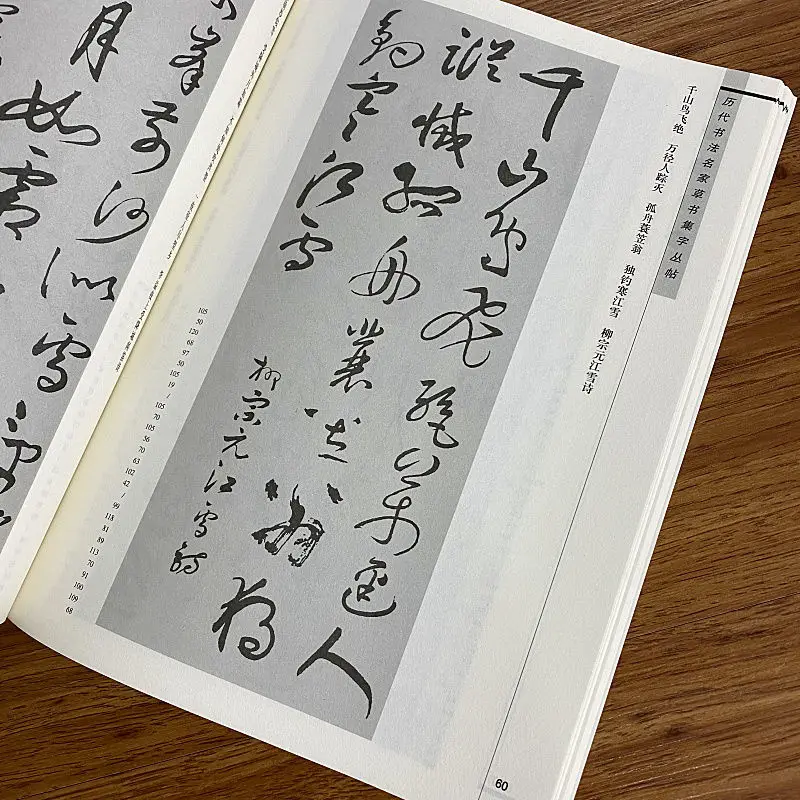 历代书法名家草书集字丛帖
千山鸟飞绝 万径人踪灭 孤舟蓑笠翁 独钓寒江雪 柳宗元江雪诗
千山鳥飛絕萬徑人
蹤滅孤舟蓑笠翁獨
釣寒江雪
柳宗元江雪詩
105 50 120 68 97 50 105 19 / 105 70 105 56 70 63 102 42 / 99 118 81 89 113 70 91 100 109 68
60
峯前沙似雪受
月如霜